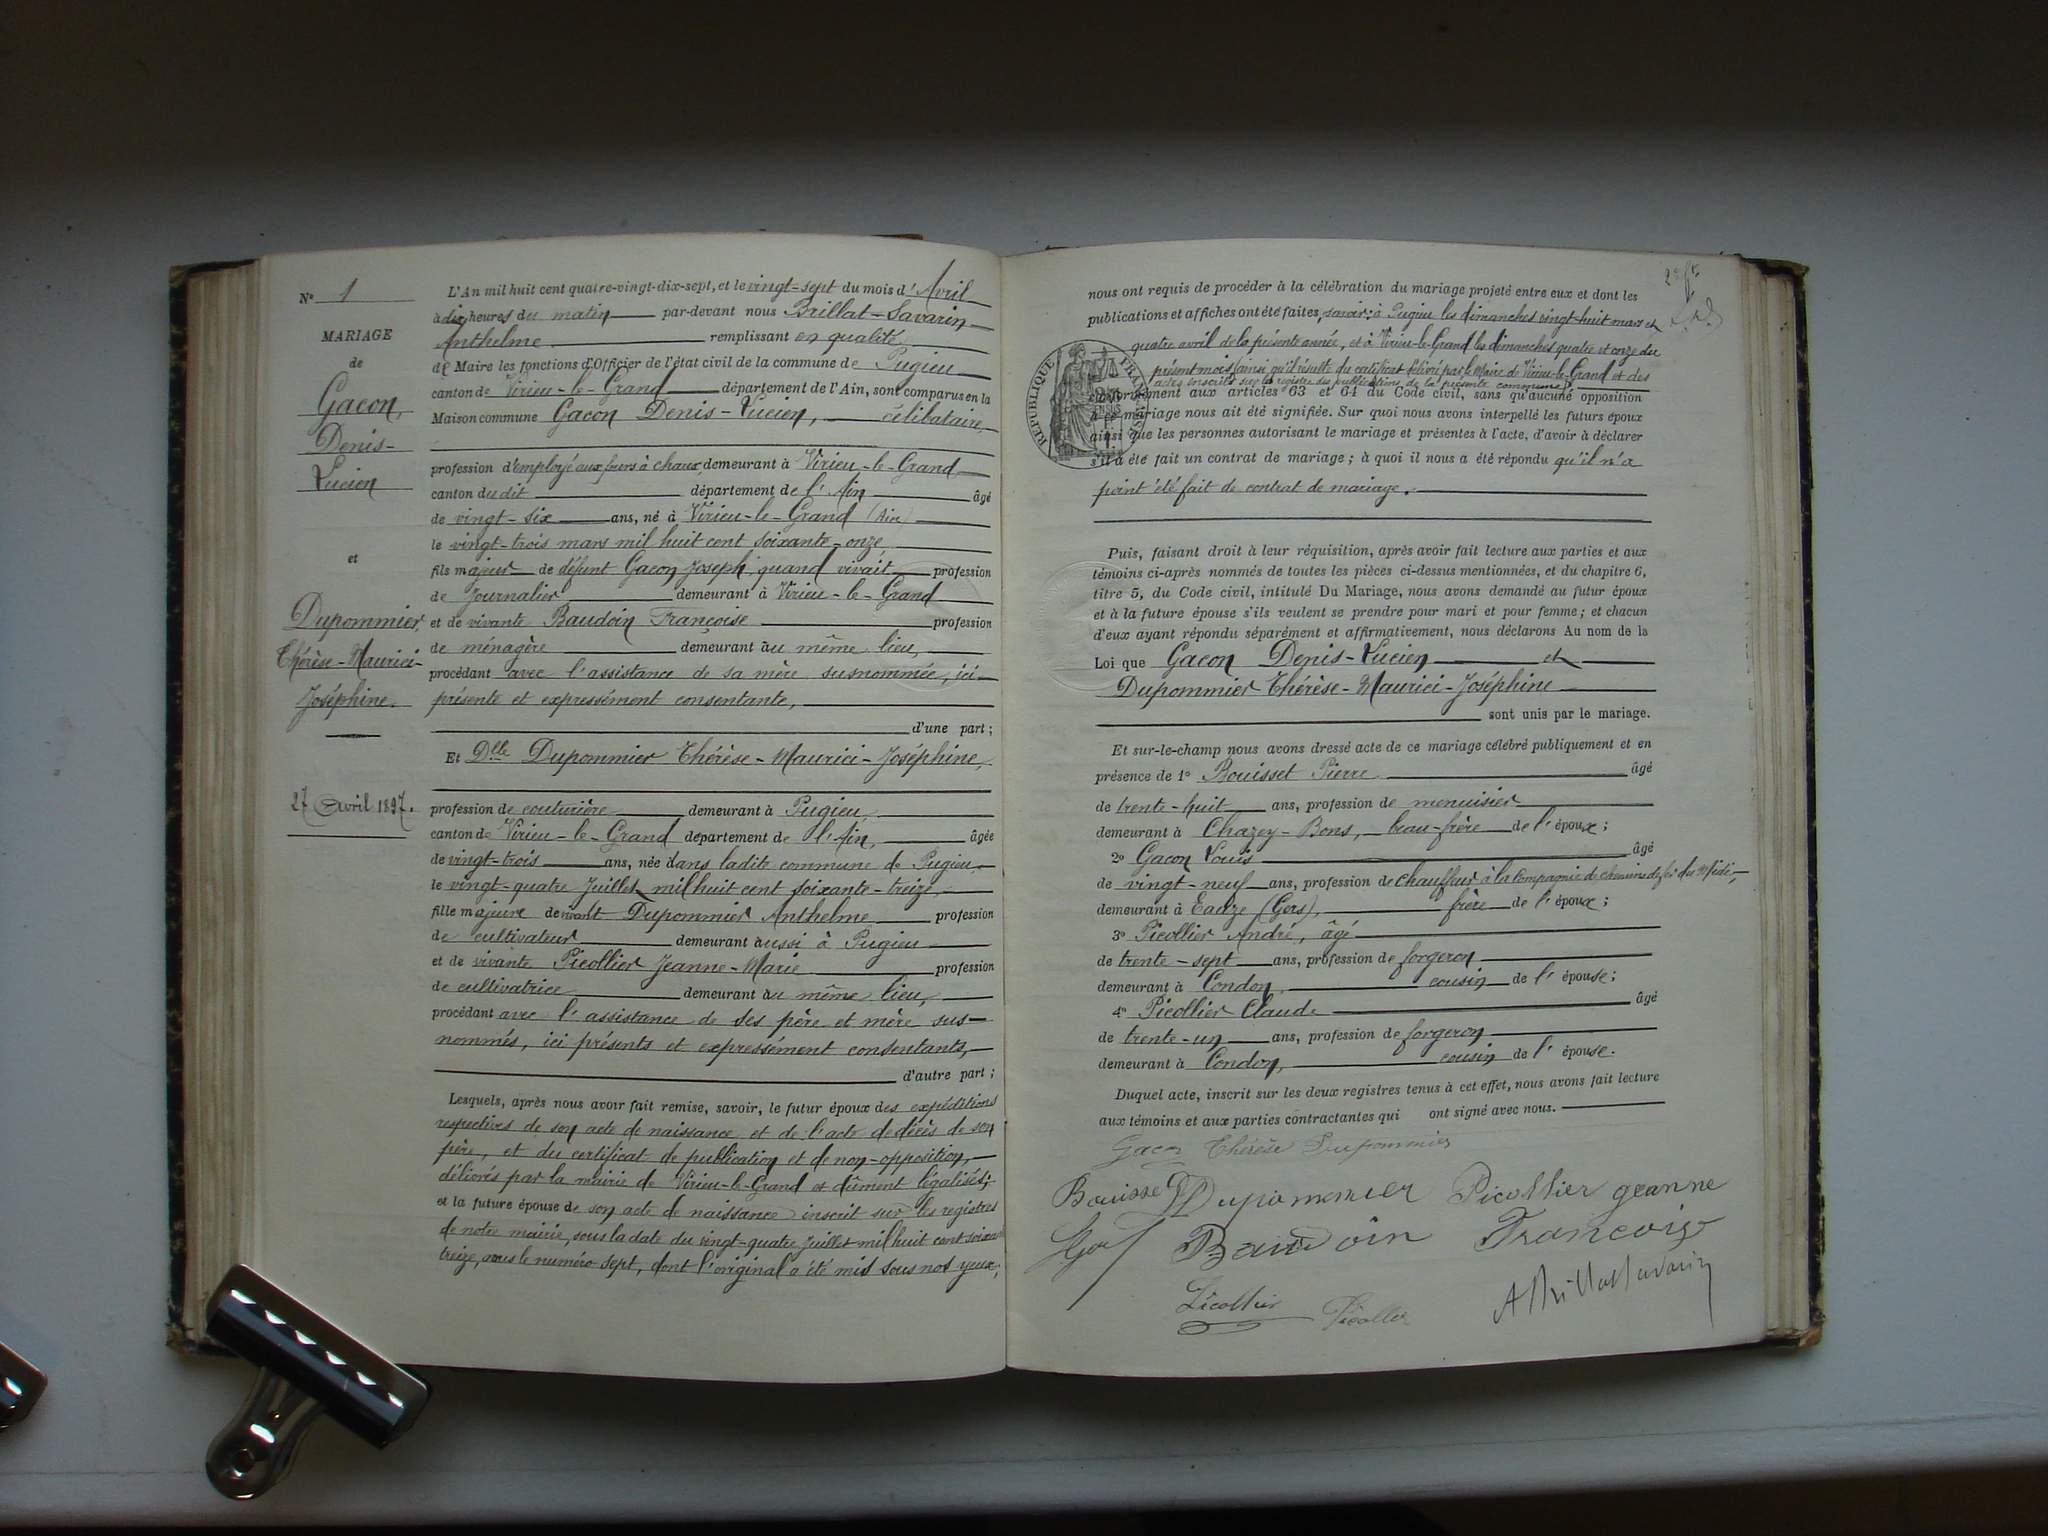 N° 1
MARIAGE
de
Gacon,
Denis-
Lucien
et
Dupommier,
Thérèse-Maurici-
Joséphine.
27 Avril 1897.
L'An mil huit cent quatre-vingt-dix-sept, et le vingt-sept du mois d'Avril
à dix heures du matin par-devant nous Brillat-Savarin
Anthelme remplissant en qualité
de Maire les fonctions d'Officier de l'état civil de la commune de Pugieu
canton de Virieu-le-Grand département de l'Ain, sont comparus en la
Maison commune Gacon Denis-Lucien, célibataire,
profession d'employé aux fours à chaux demeurant à Virieu-le-Grand
canton du dit département de l'Ain âgé
de vingt-six ans, né à Virieu-le-Grand (Ain)
le vingt-trois mars mil huit cent soixante-onze
fils majeur de défunt Gacon Joseph, quand vivait profession
de Journalier demeurant à Virieu-le-Grand
et de vivante Baudoin Françoise profession
de ménagère demeurant au même lieu,
procédant avec l'assistance de sa mère susnommée, ici
présente et expressément consentante,
d'une part;
Et Dlle Dupommier Thérèse-Maurici-Joséphine,
profession de couturière demeurant à Pugieu,
canton de Virieu-le-Grand département de l'Ain, âgée
de vingt-trois ans, née dans ladite commune de Pugieu,
le vingt-quatre Juillet mil huit cent soixante-treize,
fille majeure de vivant Dupommier Anthelme profession
de cultivateur demeurant aussi à Pugieu
et de vivante Picollier Jeanne-Marie profession
de cultivatrice demeurant au même lieu,
procédant avec l'assistance de ses père et mère sus-
nommés, ici présents et expressément consentants,
d'autre part;
Lesquels, après nous avoir fait remise, savoir, le futur époux des expéditions
respectives de son acte de naissance et de l'acte de décès de son
père, et du certificat de publication et de non-opposition,
délivrés par la mairie de Virieu-le-Grand et dûment légalisés;
et la future épouse de son acte de naissance inscrit sur les registres
de notre mairie, sous la date du vingt-quatre Juillet mil huit cent soixante
treize, sous le numéro sept, dont l'original a été mis sous nos yeux;
nous ont requis de procéder à la célébration du mariage projeté entre eux et dont les
publications et affiches ont été faites, savoir: à Pugieu les dimanches vingt-huit mars et
quatre avril de la présente année, et à Virieu-le-Grand les dimanches quatre et onze du
présent mois (ainsi qu'il résulte du certificat délivré par le Maire de Virieu-le-Grand et des
actes inscrits sur le registre des publications de la présente commune)
conformément aux articles 63 et 64 du Code civil, sans qu'aucune opposition
à ce mariage nous ait été signifiée. Sur quoi nous avons interpellé les futurs époux
ainsi que les personnes autorisant le mariage et présentes à l'acte, d'avoir à déclarer
s'il a été fait un contrat de mariage; à quoi il nous a été répondu qu'il n'a
point été fait de contrat de mariage.
RÉPUBLIQUE FRANÇAISE
Puis, faisant droit à leur réquisition, après avoir fait lecture aux parties et aux
témoins ci-après nommés de toutes les pièces ci-dessus mentionnées, et du chapitre 6,
titre 5, du Code civil, intitulé Du Mariage, nous avons demandé au futur époux
et à la future épouse s'ils veulent se prendre pour mari et pour femme; et chacun
d'eux ayant répondu séparément et affirmativement, nous déclarons Au nom de la
Loi que Gacon Denis-Lucien et
Dupommier Thérèse-Maurici-Joséphine
sont unis par le mariage.
Et sur-le-champ nous avons dressé acte de ce mariage célébré publiquement et en
présence de 1° Bouisset Pierre âgé
de trente-huit ans, profession de menuisier
demeurant à Chazey-Bons, beau-frère de l'époux;
2° Gacon Louis âgé
de vingt-neuf ans, profession de chauffeur à la Compagnie de chemins de fer du Midi,
demeurant à Eauze (Gers), frère de l'époux;
3° Picollier André, âgé
de trente-sept ans, profession de forgeron
demeurant à Condon, cousin de l'épouse;
4° Picollier Claude âgé
de trente-un ans, profession de forgeron
demeurant à Condon, cousin de l'épouse.
Duquel acte, inscrit sur les deux registres tenus à cet effet, nous avons fait lecture
aux témoins et aux parties contractantes qui ont signé avec nous.
Gacon Thérèse Dupommier
Bouisset Dupommier Picollier Jeanne
Baudoin Françoise
Picollier Picollier
A Brillat Savarin